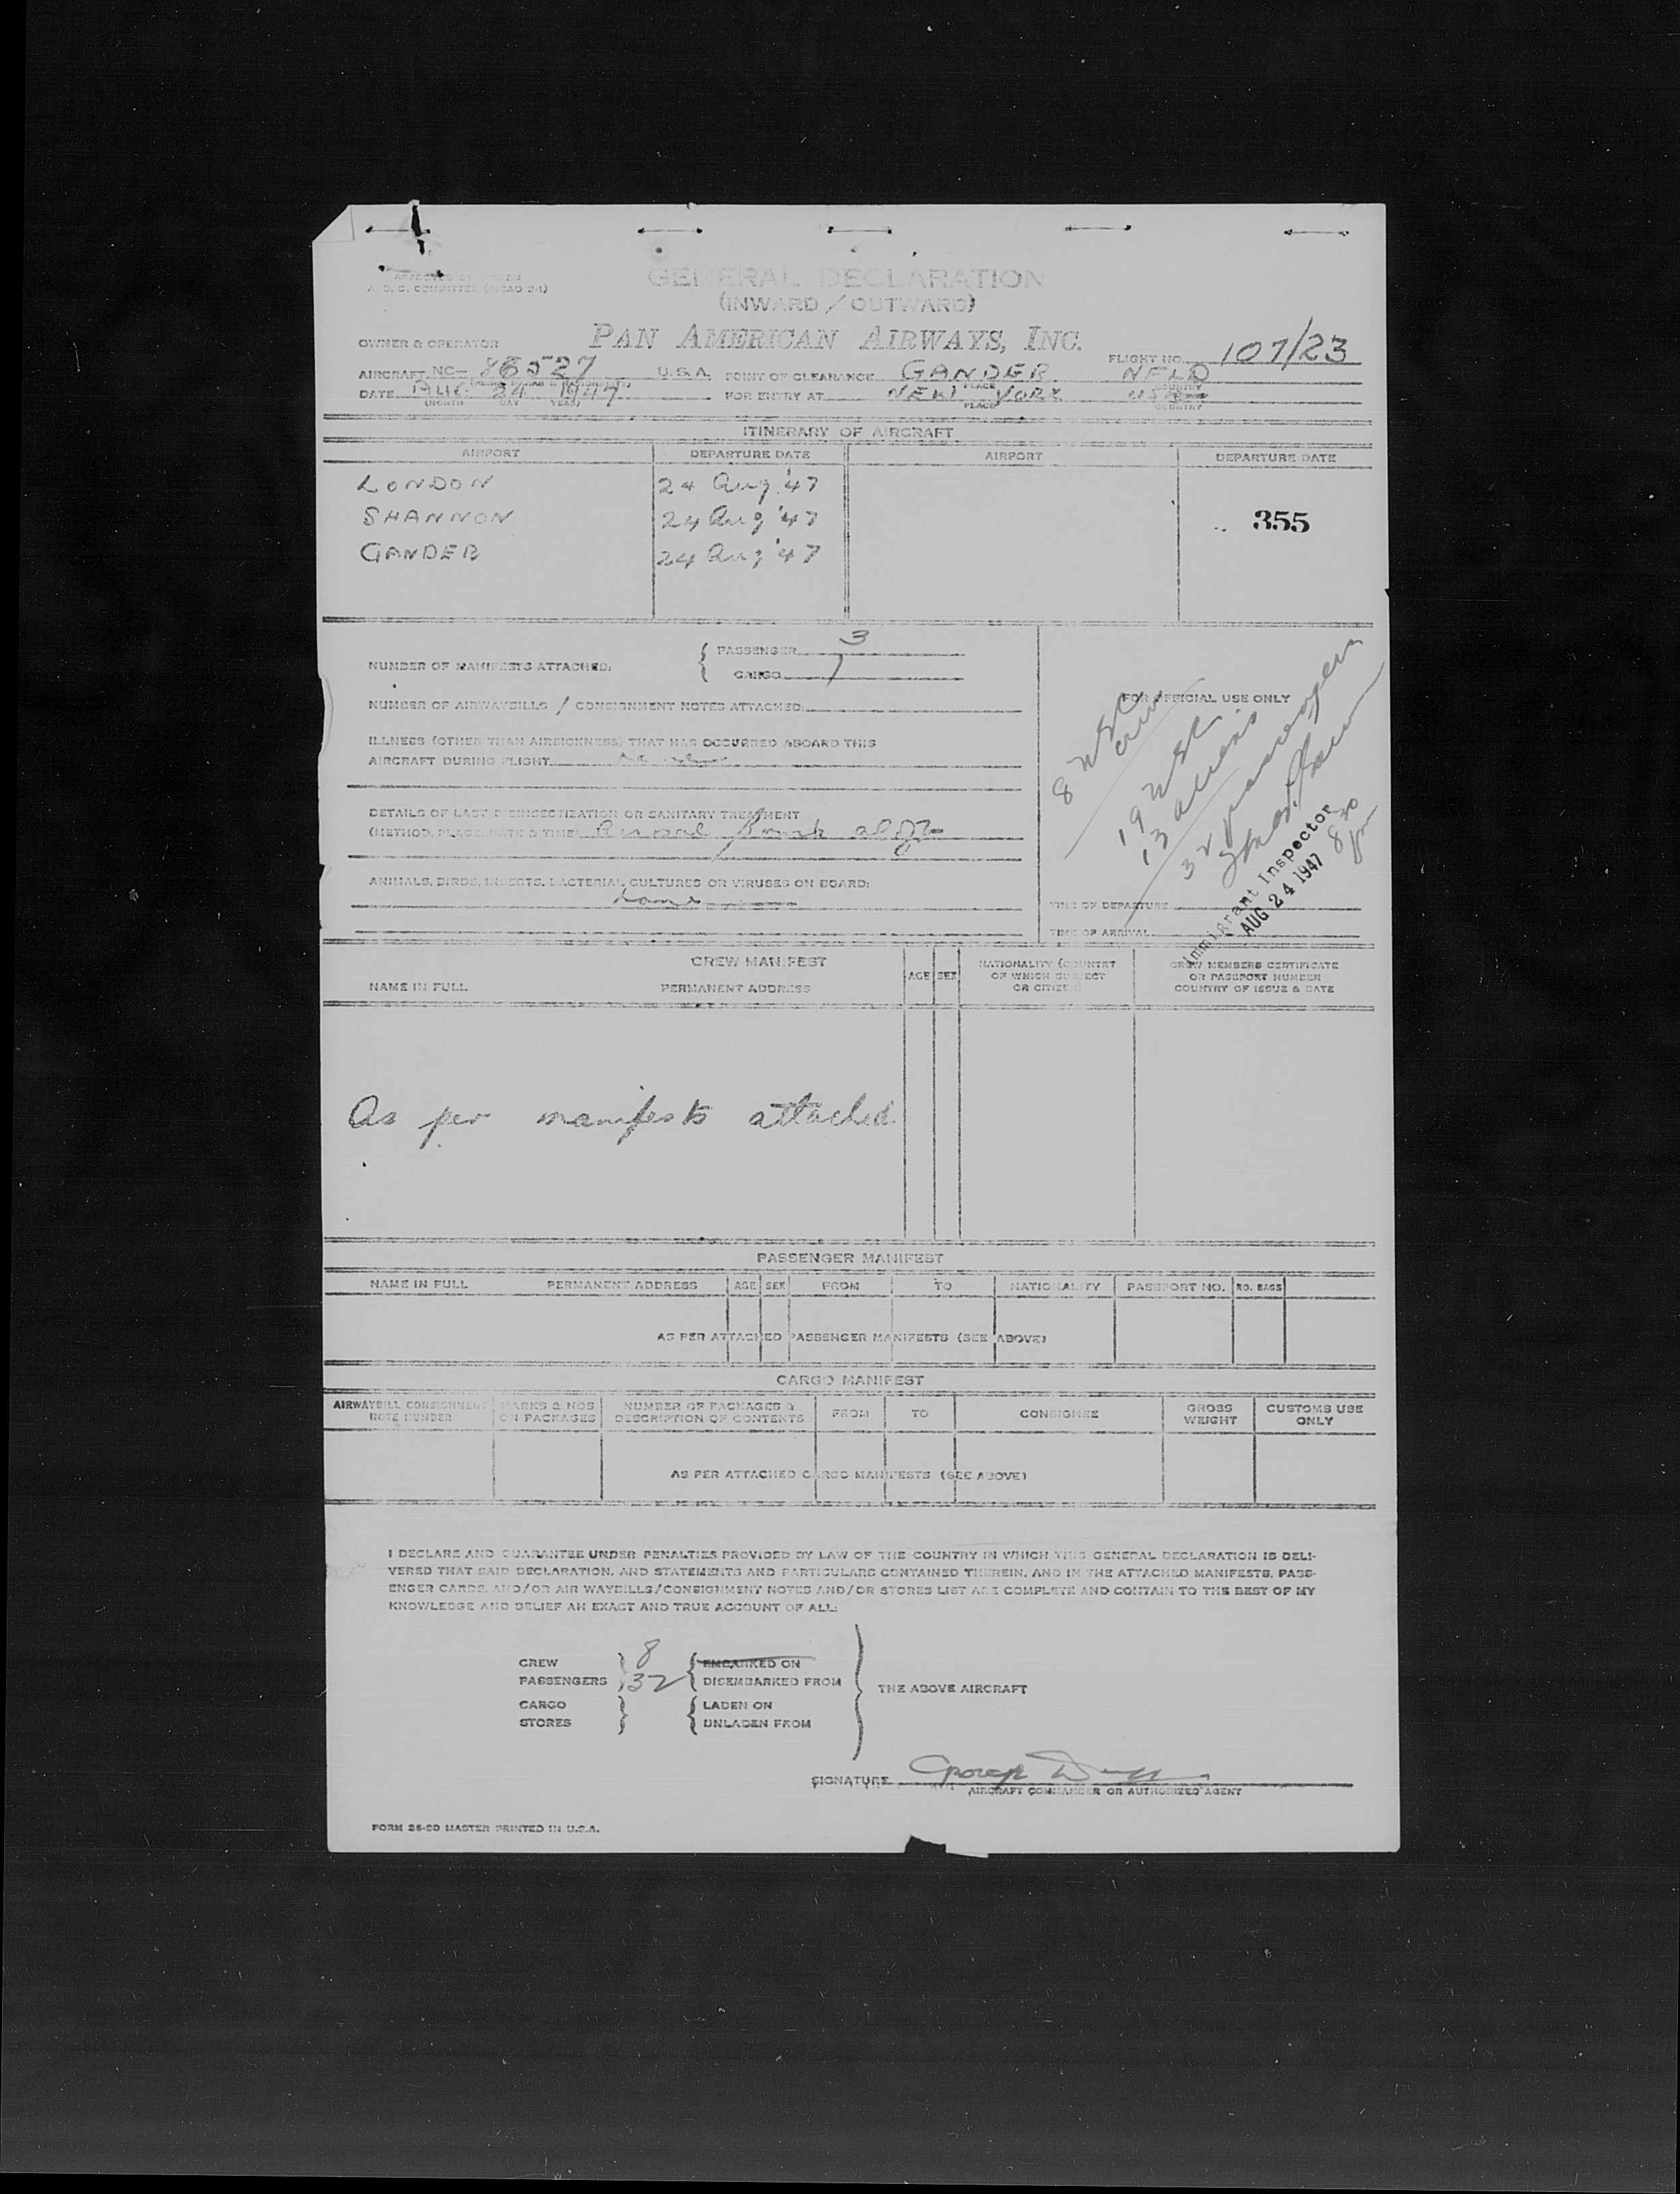 GENERAL DECLARATION
A. O. C. COMMITTEE
(INWARD / OUTWARD)
OWNER & OPERATOR PAN AMERICAN AIRWAYS, INC. FLIGHT NO. 107/23
AIRCRAFT NC- 86527 U.S.A. POINT OF CLEARANCE GANDER NFLD
PLACE COUNTRY
DATE AUG. 24 1947 FOR ENTRY AT NEW YORK USA
(MONTH DAY YEAR) PLACE COUNTRY
ITINERARY OF AIRCRAFT
AIRPORT DEPARTURE DATE AIRPORT DEPARTURE DATE
LONDON 24 Aug '47
SHANNON 24 Aug '47 355
GANDER 24 Aug '47
NUMBER OF MANIFESTS ATTACHED: { PASSENGER 3
CARGO 1
FOR OFFICIAL USE ONLY
NUMBER OF AIRWAYBILLS / CONSIGNMENT NOTES ATTACHED:
ILLNESS (OTHER THAN AIRSICKNESS) THAT HAS OCCURRED ABOARD THIS
AIRCRAFT DURING FLIGHT
8 USC crew
19 USC
13 aliens
32 passengers
Immigrant Inspector
AUG 24 1947
8 30 pm
DETAILS OF LAST DISINSECTIZATION OR SANITARY TREATMENT
(METHOD, PLACE, DATE & TIME)
ANIMALS, BIRDS, INSECTS, BACTERIAL CULTURES OR VIRUSES ON BOARD:
None
TIME OF DEPARTURE
TIME OF ARRIVAL
CREW MANIFEST
NAME IN FULL PERMANENT ADDRESS AGE SEX NATIONALITY (COUNTRY OF WHICH SUBJECT OR CITIZEN) CREW MEMBERS CERTIFICATE OR PASSPORT NUMBER COUNTRY OF ISSUE & DATE
As per manifests attached
PASSENGER MANIFEST
NAME IN FULL PERMANENT ADDRESS AGE SEX FROM TO NATIONALITY PASSPORT NO. NO. BAGS
AS PER ATTACHED PASSENGER MANIFESTS (SEE ABOVE)
CARGO MANIFEST
AIRWAYBILL CONSIGNMENT NOTE NUMBER MARKS & NOS ON PACKAGES NUMBER OF PACKAGES & DESCRIPTION OF CONTENTS FROM TO CONSIGNEE GROSS WEIGHT CUSTOMS USE ONLY
AS PER ATTACHED CARGO MANIFESTS (SEE ABOVE)
I DECLARE AND GUARANTEE UNDER PENALTIES PROVIDED BY LAW OF THE COUNTRY IN WHICH THIS GENERAL DECLARATION IS DELI-
VERED THAT SAID DECLARATION, AND STATEMENTS AND PARTICULARS CONTAINED THEREIN, AND IN THE ATTACHED MANIFESTS, PASS-
ENGER CARDS, AND/OR AIR WAYBILLS/CONSIGNMENT NOTES AND/OR STORES LIST ARE COMPLETE AND CONTAIN TO THE BEST OF MY
KNOWLEDGE AND BELIEF AN EXACT AND TRUE ACCOUNT OF ALL:
CREW } 8 { EMBARKED ON
PASSENGERS } 32 { DISEMBARKED FROM
THE ABOVE AIRCRAFT
CARGO } { LADEN ON
STORES } { UNLADEN FROM
SIGNATURE George
AIRCRAFT COMMANDER OR AUTHORIZED AGENT
FORM 26-SD MASTER PRINTED IN U.S.A.